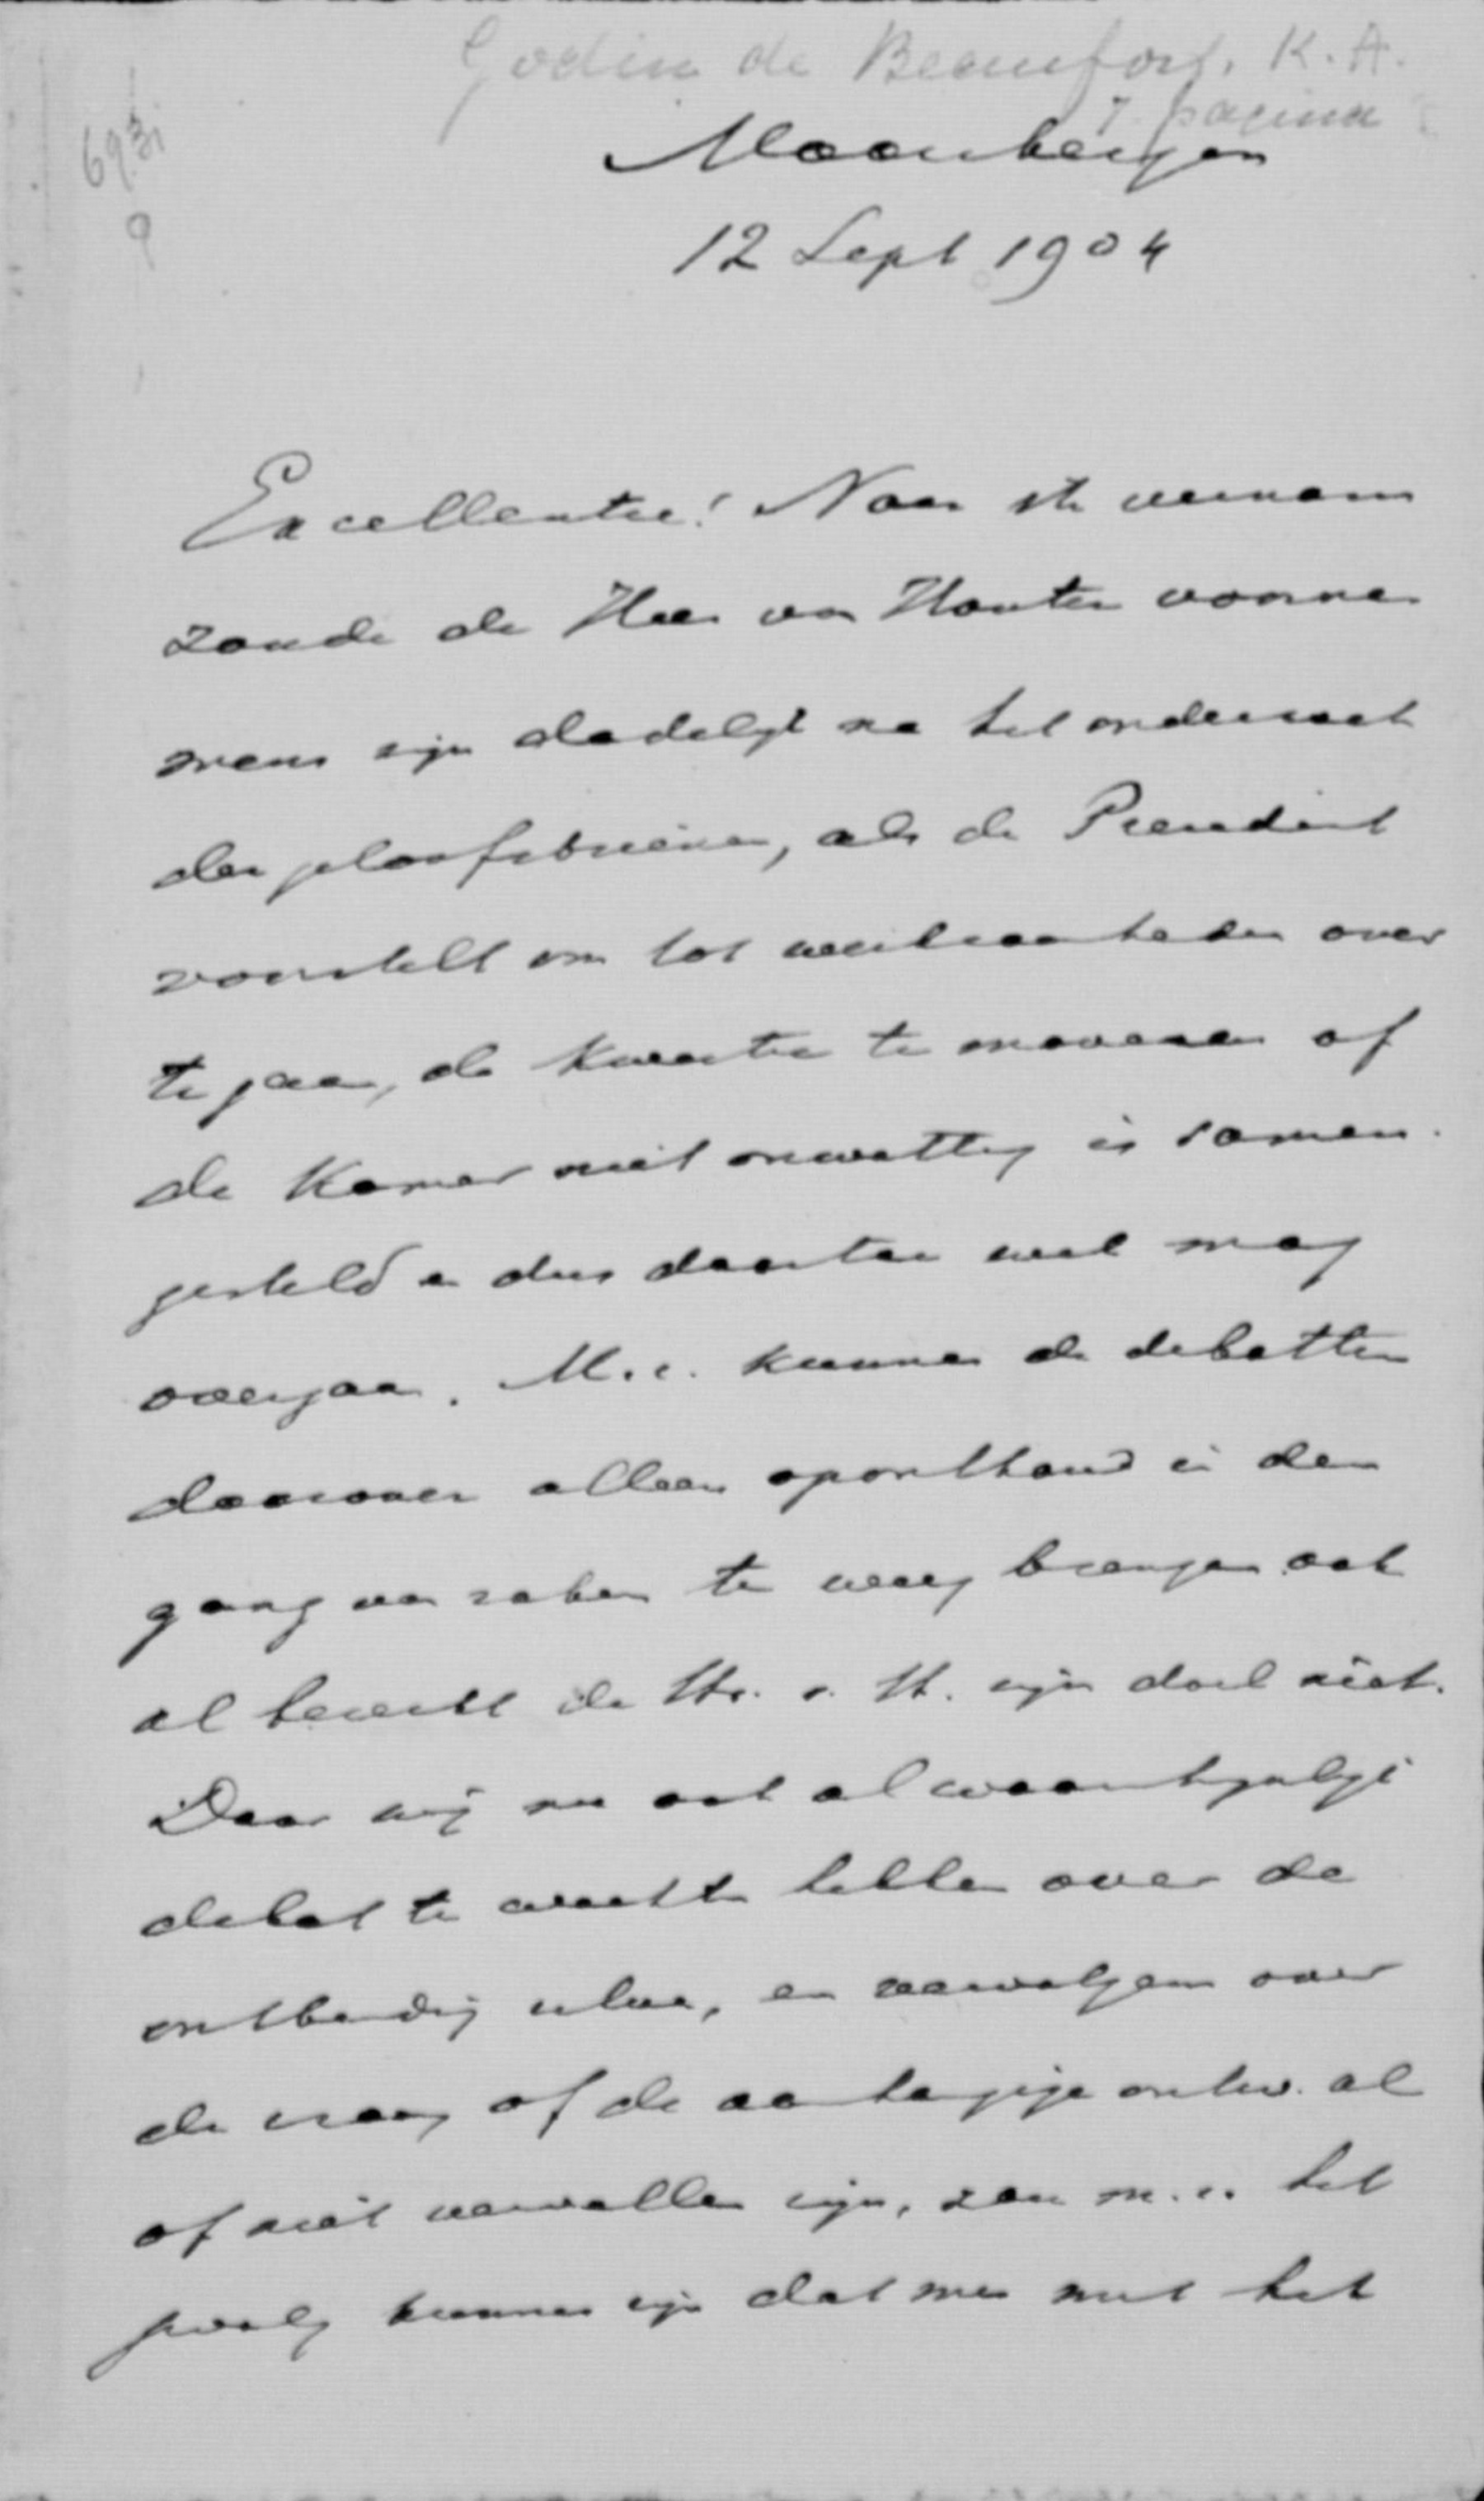 Godin de Beaufort, K. A.
7 pagina
693i
9
Maarnbergen
12 Sept 1904
Excellentie! Naar ik vernam
zoude de Heer van Houten voorne
mens zijn dadelijk na het onderzoek
der geloofsbrieven, als de President
voorstelt om tot werkzaamheden over
te gaan, de kwestie te moveeren of
de Kamer niet onwettig is samen
gesteld en dus daartoe wel mag
overgaan. M.i. kunnen de debatten
daarover alleen oponthoud in den
gang van zaken te weeg brengen ook
al bereikt de Hr. v. H. zijn doel niet.
Daar wij nu ook al waarschijnlijk
debat te wachten hebben over de
ontbinding zelve, en vervolgens over
de vraag of de aanhangige ontw. al
of niet vervallen zijn, zou m.i. het
gevolg kunnen zijn dat men met het